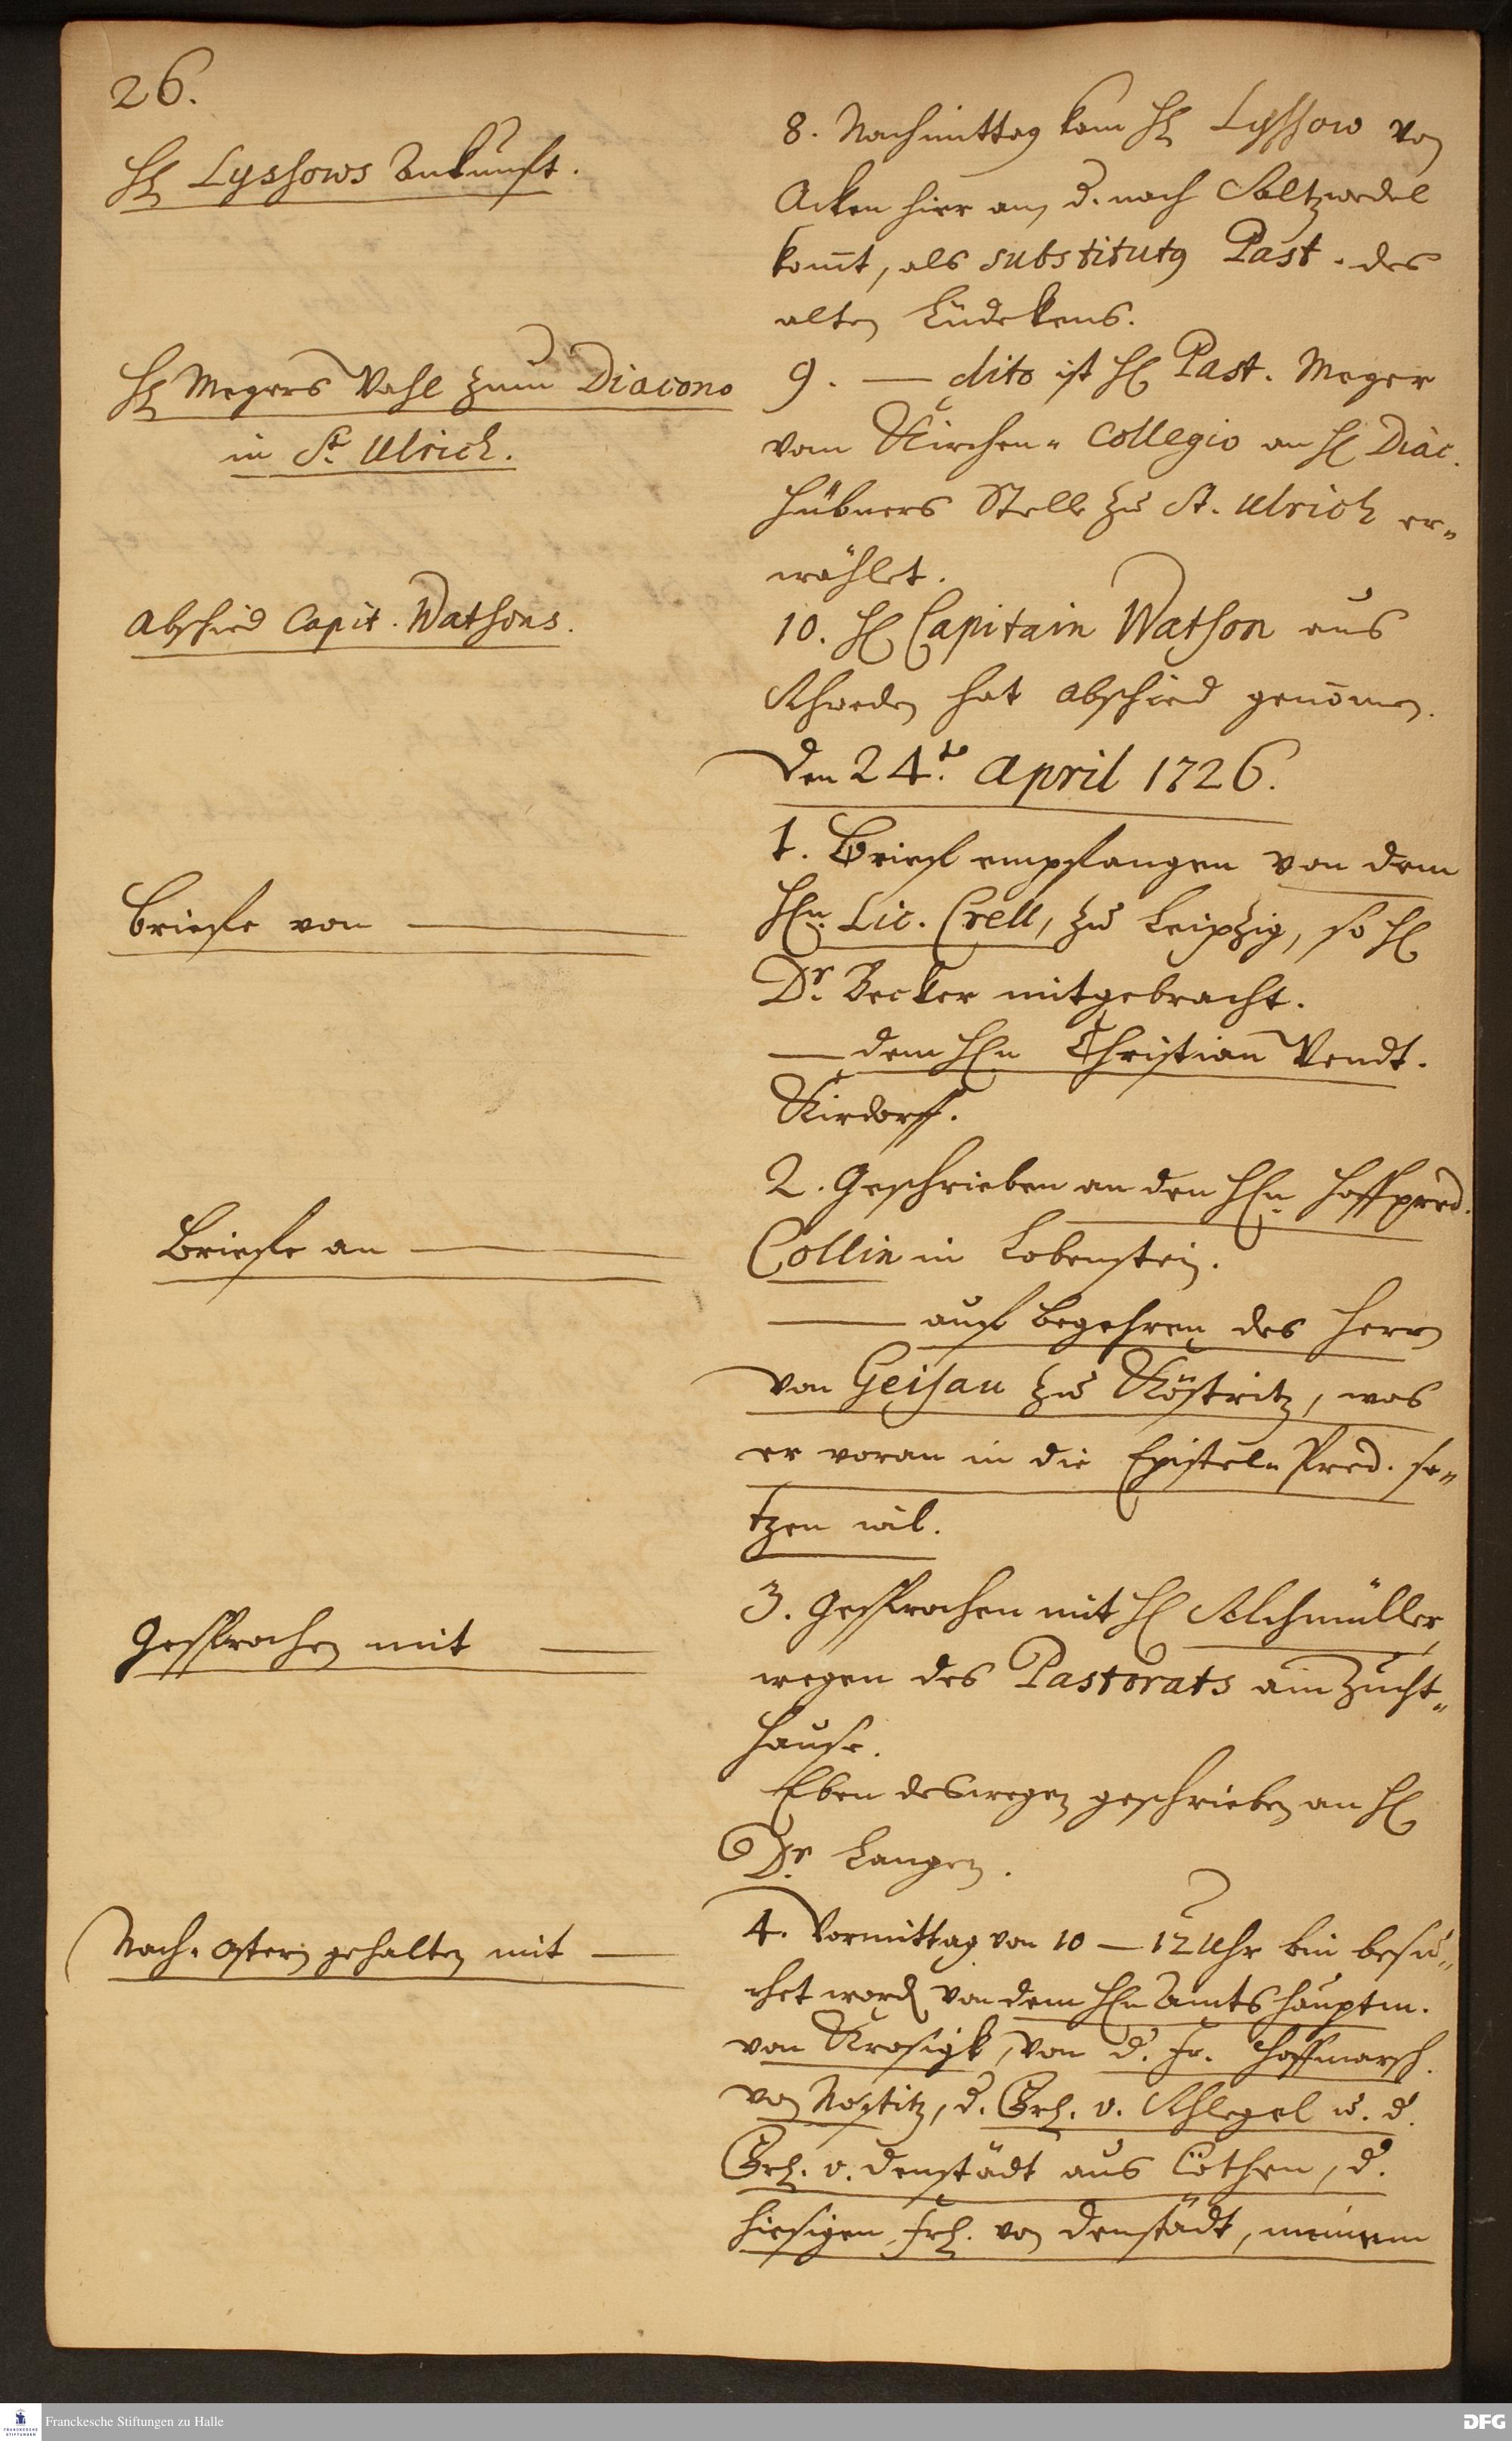 26.
H. Lyssows Ankunfft.
8. Nachmittag kam H. Lyssow von
Acken hier an, d. nach Saltzwedel
kom̄t, als substitutus Past. des
alten Lüdekens.
H. Megers Wahl zum Diacono
in St. Ulrich.
9. — dito ist H. Past. Meger
vom Kirchen-Collegio an H. Diac.
Hübners Stelle zu St. Ulrich er-
wählet.
Abschied Capit. Watsons.
10. H. Capitain Watson aus
Schweden hat Abschied genom̄en.
Den 24.t. April 1726.
Briefe von —
1. Brieff empfangen von dem
HEn. Lic. Crell, zu Leipzig, so H.
Dr. Becker mitgebracht.
— dem HEn Christian Wendt.
Kirdorff.
Briefe an —
2. Geschrieben an den HEn Hoffpred.
Collin in Lobenstein.
— auf begehren des Herrn
von Geisau zu Köstritz, was
er voran in die Epistel-Pred. se-
tzen wil.
Gesprochen mit —
3. Gesprochen mit H. Alchmüller
wegen des Pastorats am Zucht-
Hause.
Eben deswegen geschrieben an H.
Dr. Langen.
Nach-Ostern gehalten mit —
4. Vormittag von 10 – 12 Uhr bin besu-
chet word. von dem HEn Amtshauptm.
von Krosigk, von d. Fr. Hoffmarsch.
von Nostitz, d. Frl. v. Schlegel u. d.
Frl. v. Denstädt aus Cöthen, d.
hiesigen Frl. von Denstädt, meinem
Franckesche Stiftungen zu Halle
DFG